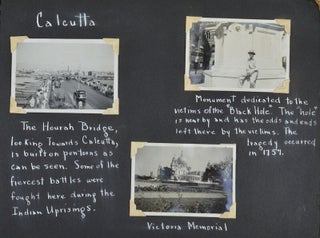 Calcutta
The Hourah Bridge,
looking towards Calcutta,
is built on pontoons as
can be seen. Some of the
fiercest battles were
fought here during the
Indian Uprisings.
Monument dedicated to the
victims of the "Black Hole". The "hole"
is near by and has the odds and ends
left there by the victims. The
tragedy occurred
in 1757.
Victoria Memorial